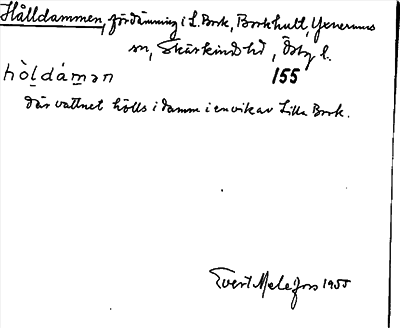 Hålldammen, fördämning i L. Bork, Borkhult, Yxnerums
sn, Skärkinds hd, Ösbg l.
hòḷdám̱ən 155
där vattnet hölls i damm i en vik av Lilla Bork.
Evert Melefors 1955